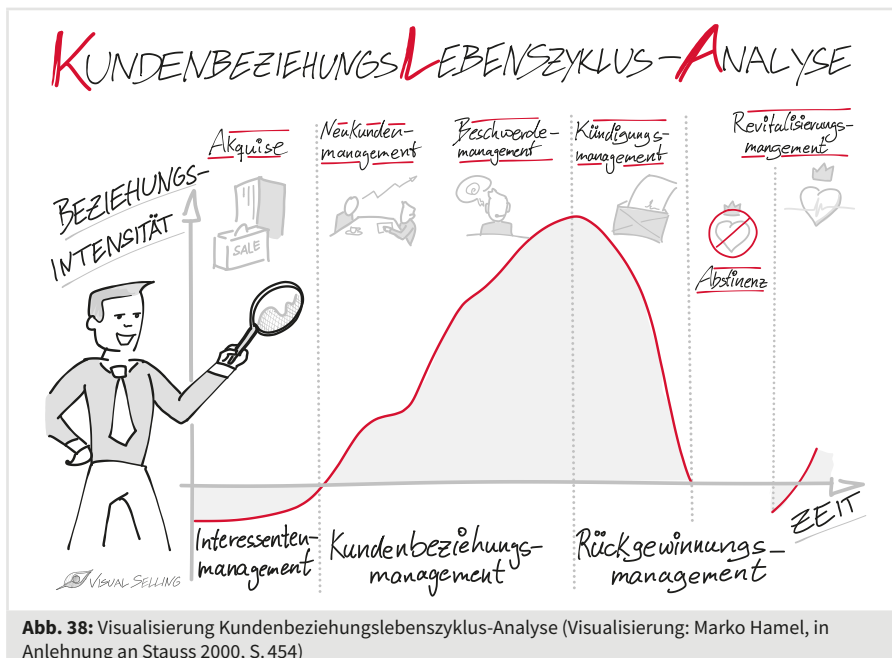 KUNDENBEZIEHUNGSLEBENSZYKLUS-ANALYSE
Akquise
Neukunden-
management
Beschwerde-
management
Kündigungs-
management
Revitalisierungs-
mangement
BEZIEHUNGS-
INTENSITÄT
SALE
Abstinenz
ZEIT
Interessenten-
management
Kundenbeziehungs-
management
Rückgewinnungs-
management
VISUAL SELLING
Abb. 38: Visualisierung Kundenbeziehungslebenszyklus-Analyse (Visualisierung: Marko Hamel, in
Anlehnung an Stauss 2000, S. 454)